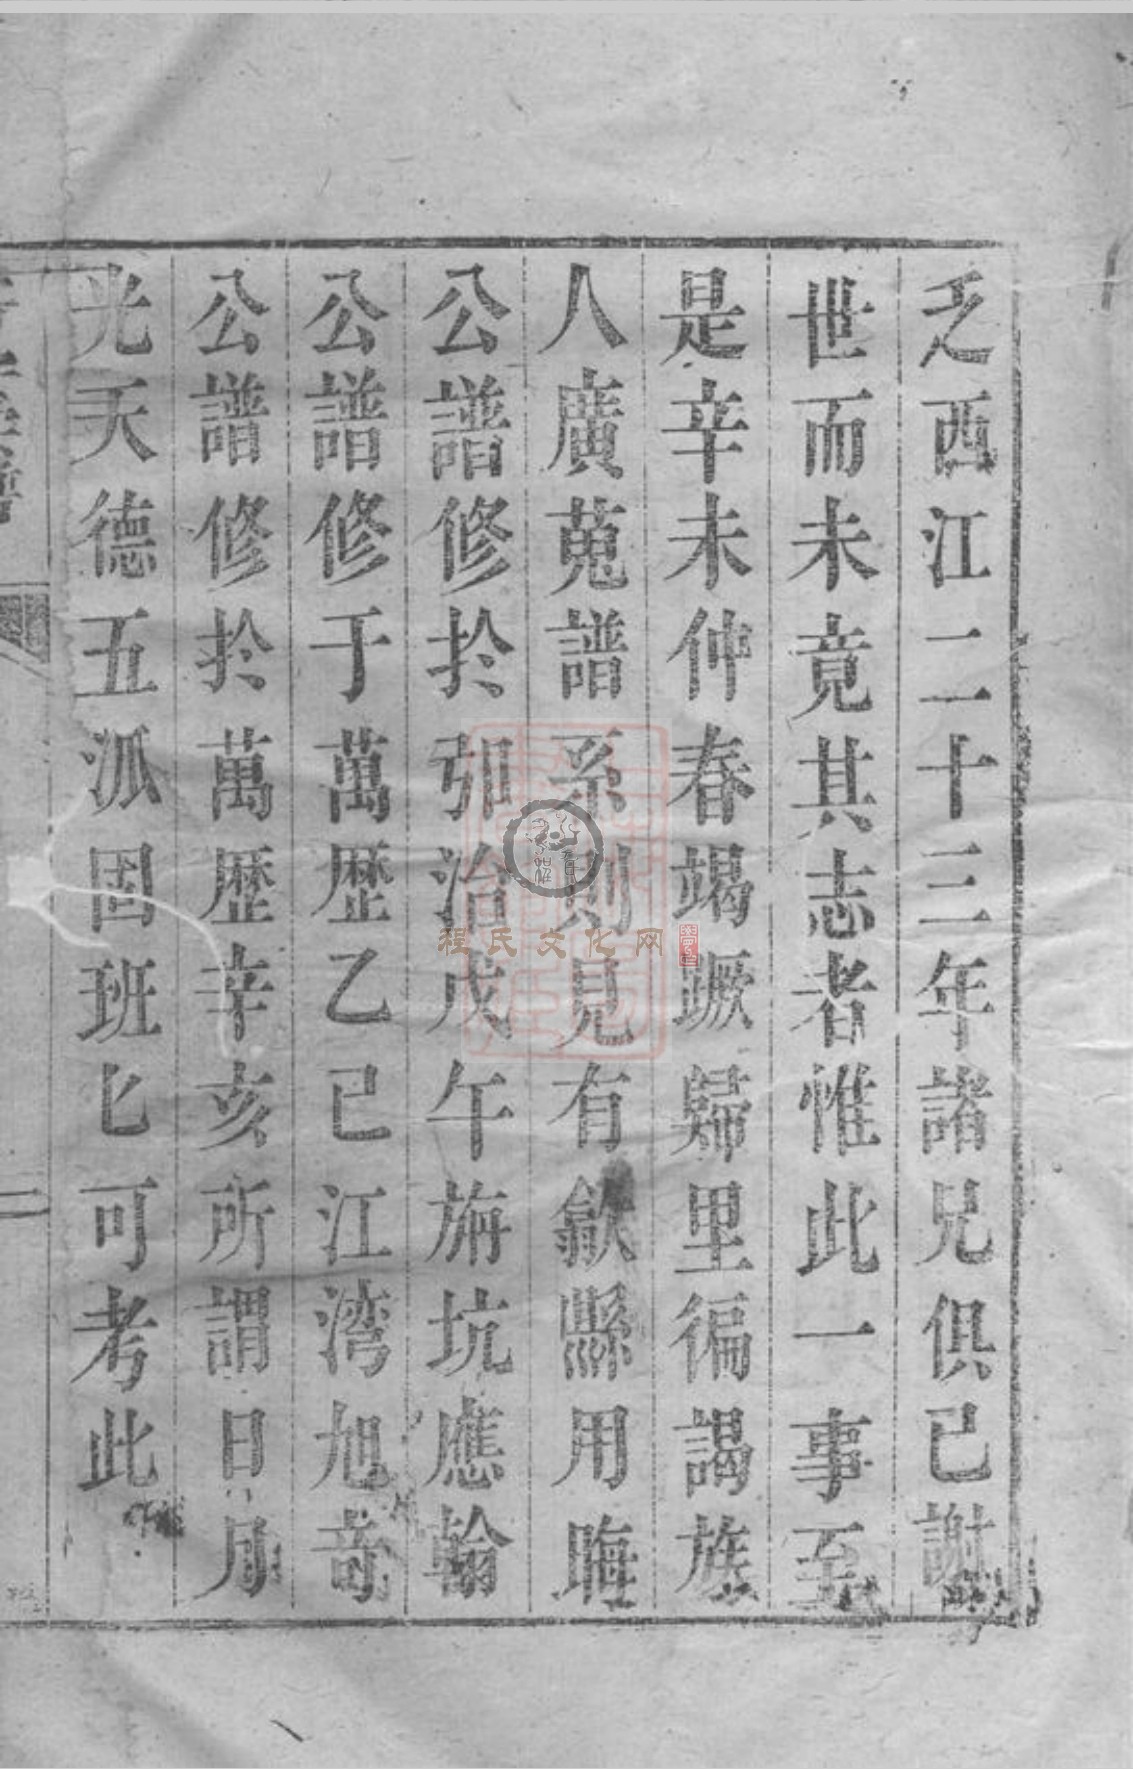 之西江二十三年諸兄俱已謝
世而未竟其志者惟此一事至
是辛未仲春竭蹶歸里徧謁族
人廣蒐譜系則見有歙縣用晦
公譜修於弘治戊午旃坑應翰
公譜修于萬歷乙巳江湾旭竒
公譜修於萬歷辛亥所謂日月
光天德五派固班匕可考此
程氏文化网